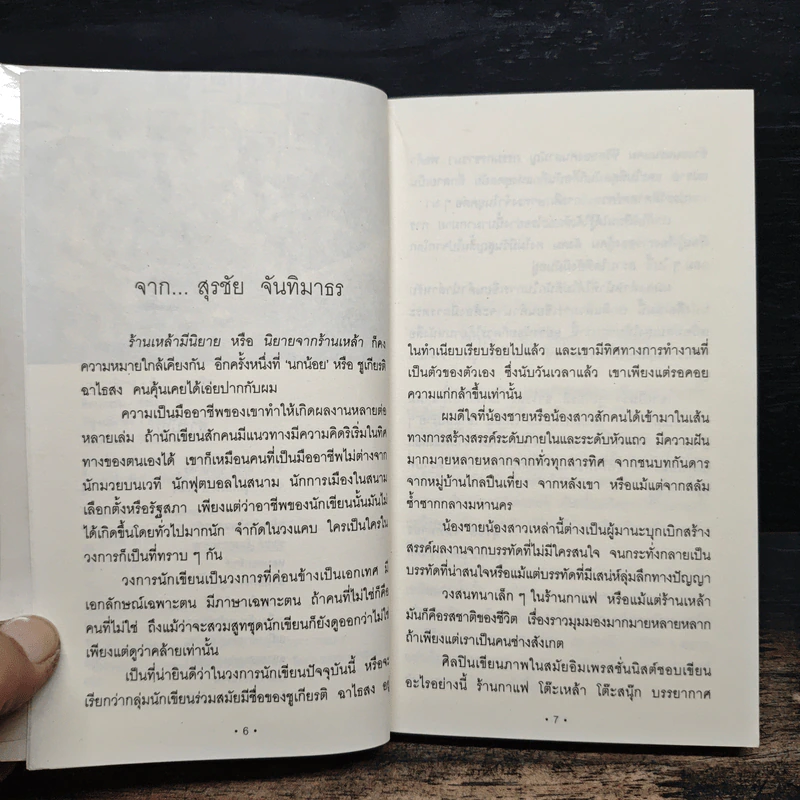 จาก... สุรชัย จันทิมาธร
ร้านเหล้ามีนิยาย หรือ นิยายจากร้านเหล้า ก็คง
ความหมายใกล้เคียงกัน อีกครั้งหนึ่งที่ ‘นกน้อย’ หรือ ชูเกียรติ
ฉาไธสง คนคุ้นเคยได้เอ่ยปากกับผม
ความเป็นมืออาชีพของเขาทำให้เกิดผลงานหลายต่อ
หลายเล่ม ถ้านักเขียนสักคนมีแนวทางมีความคิดริเริ่มในทิศ
ทางของตนเองได้ เขาก็เหมือนคนที่เป็นมืออาชีพไม่ต่างจาก
นักมวยบนเวที นักฟุตบอลในสนาม นักการเมืองในสนาม
เลือกตั้งหรือรัฐสภา เพียงแต่ว่าอาชีพของนักเขียนนั้นมันไม่
ได้เกิดขึ้นโดยทั่วไปมากนัก จำกัดในวงแคบ ใครเป็นใครใน
วงการก็เป็นที่ทราบ ๆ กัน
วงการนักเขียนเป็นวงการที่ค่อนข้างเป็นเอกเทศ มี
เอกลักษณ์เฉพาะตน มีภาษาเฉพาะตน ถ้าคนที่ไม่ใช่ก็คือ
คนที่ไม่ใช่ ถึงแม้ว่าจะสวมสูทชุดนักเขียนก็ยังดูออกว่าไม่ใช่
เพียงแต่ดูว่าคล้ายเท่านั้น
เป็นที่น่ายินดีว่าในวงการนักเขียนปัจจุบันนี้ หรือจะ
เรียกว่ากลุ่มนักเขียนร่วมสมัยมีชื่อของชูเกียรติ ฉาไธสง อยู่
• 6 •
ในทำเนียบเรียบร้อยไปแล้ว และเขามีทิศทางการทำงานที่
เป็นตัวของตัวเอง ซึ่งนับวันเวลาแล้ว เขาเพียงแต่รอคอย
ความแก่กล้าขึ้นเท่านั้น
ผมดีใจที่น้องชายหรือน้องสาวสักคนได้เข้ามาในเส้น
ทางการสร้างสรรค์ระดับภายในและระดับหัวแถว มีความฝัน
มากมายหลายหลากจากทั่วทุกสารทิศ จากชนบทกันดาร
จากหมู่บ้านไกลปืนเที่ยง จากหลังเขา หรือแม้แต่จากสลัม
ซ้ำซากกลางมหานคร
น้องชายน้องสาวเหล่านี้ต่างเป็นผู้มานะบุกเบิกสร้าง
สรรค์ผลงานจากบรรทัดที่ไม่มีใครสนใจ จนกระทั่งกลายเป็น
บรรทัดที่น่าสนใจหรือแม้แต่บรรทัดที่มีเสน่ห์ลุ่มลึกทางปัญญา
วงสนทนาเล็ก ๆ ในร้านกาแฟ หรือแม้แต่ร้านเหล้า
มันก็คือรสชาติของชีวิต เรื่องราวมุมมองมากมายหลายหลาก
ถ้าเพียงแต่เราเป็นคนช่างสังเกต
ศิลปินเขียนภาพในสมัยอิมเพรสชั่นนิสต์ชอบเขียน
อะไรอย่างนี้ ร้านกาแฟ โต๊ะเหล้า โต๊ะสนุ๊ก บรรยากาศ
• 7 •